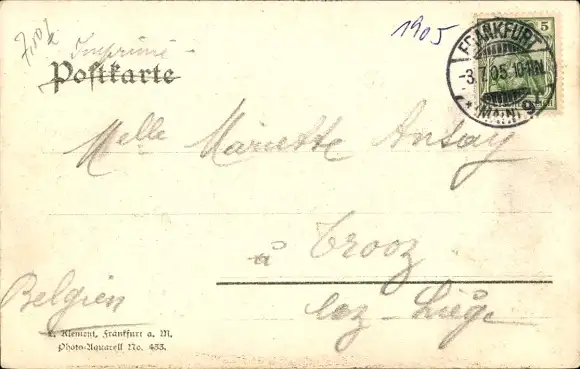 1905
Imprimé
Postkarte
5
FRANKFURT
-3.7.05.10-11N
* (MAIN) 9
Melle Mariette Ansay
à Trooz
lez-Liège
Belgien
L. Klement, Frankfurt a. M.
Photo-Aquarell No. 433.